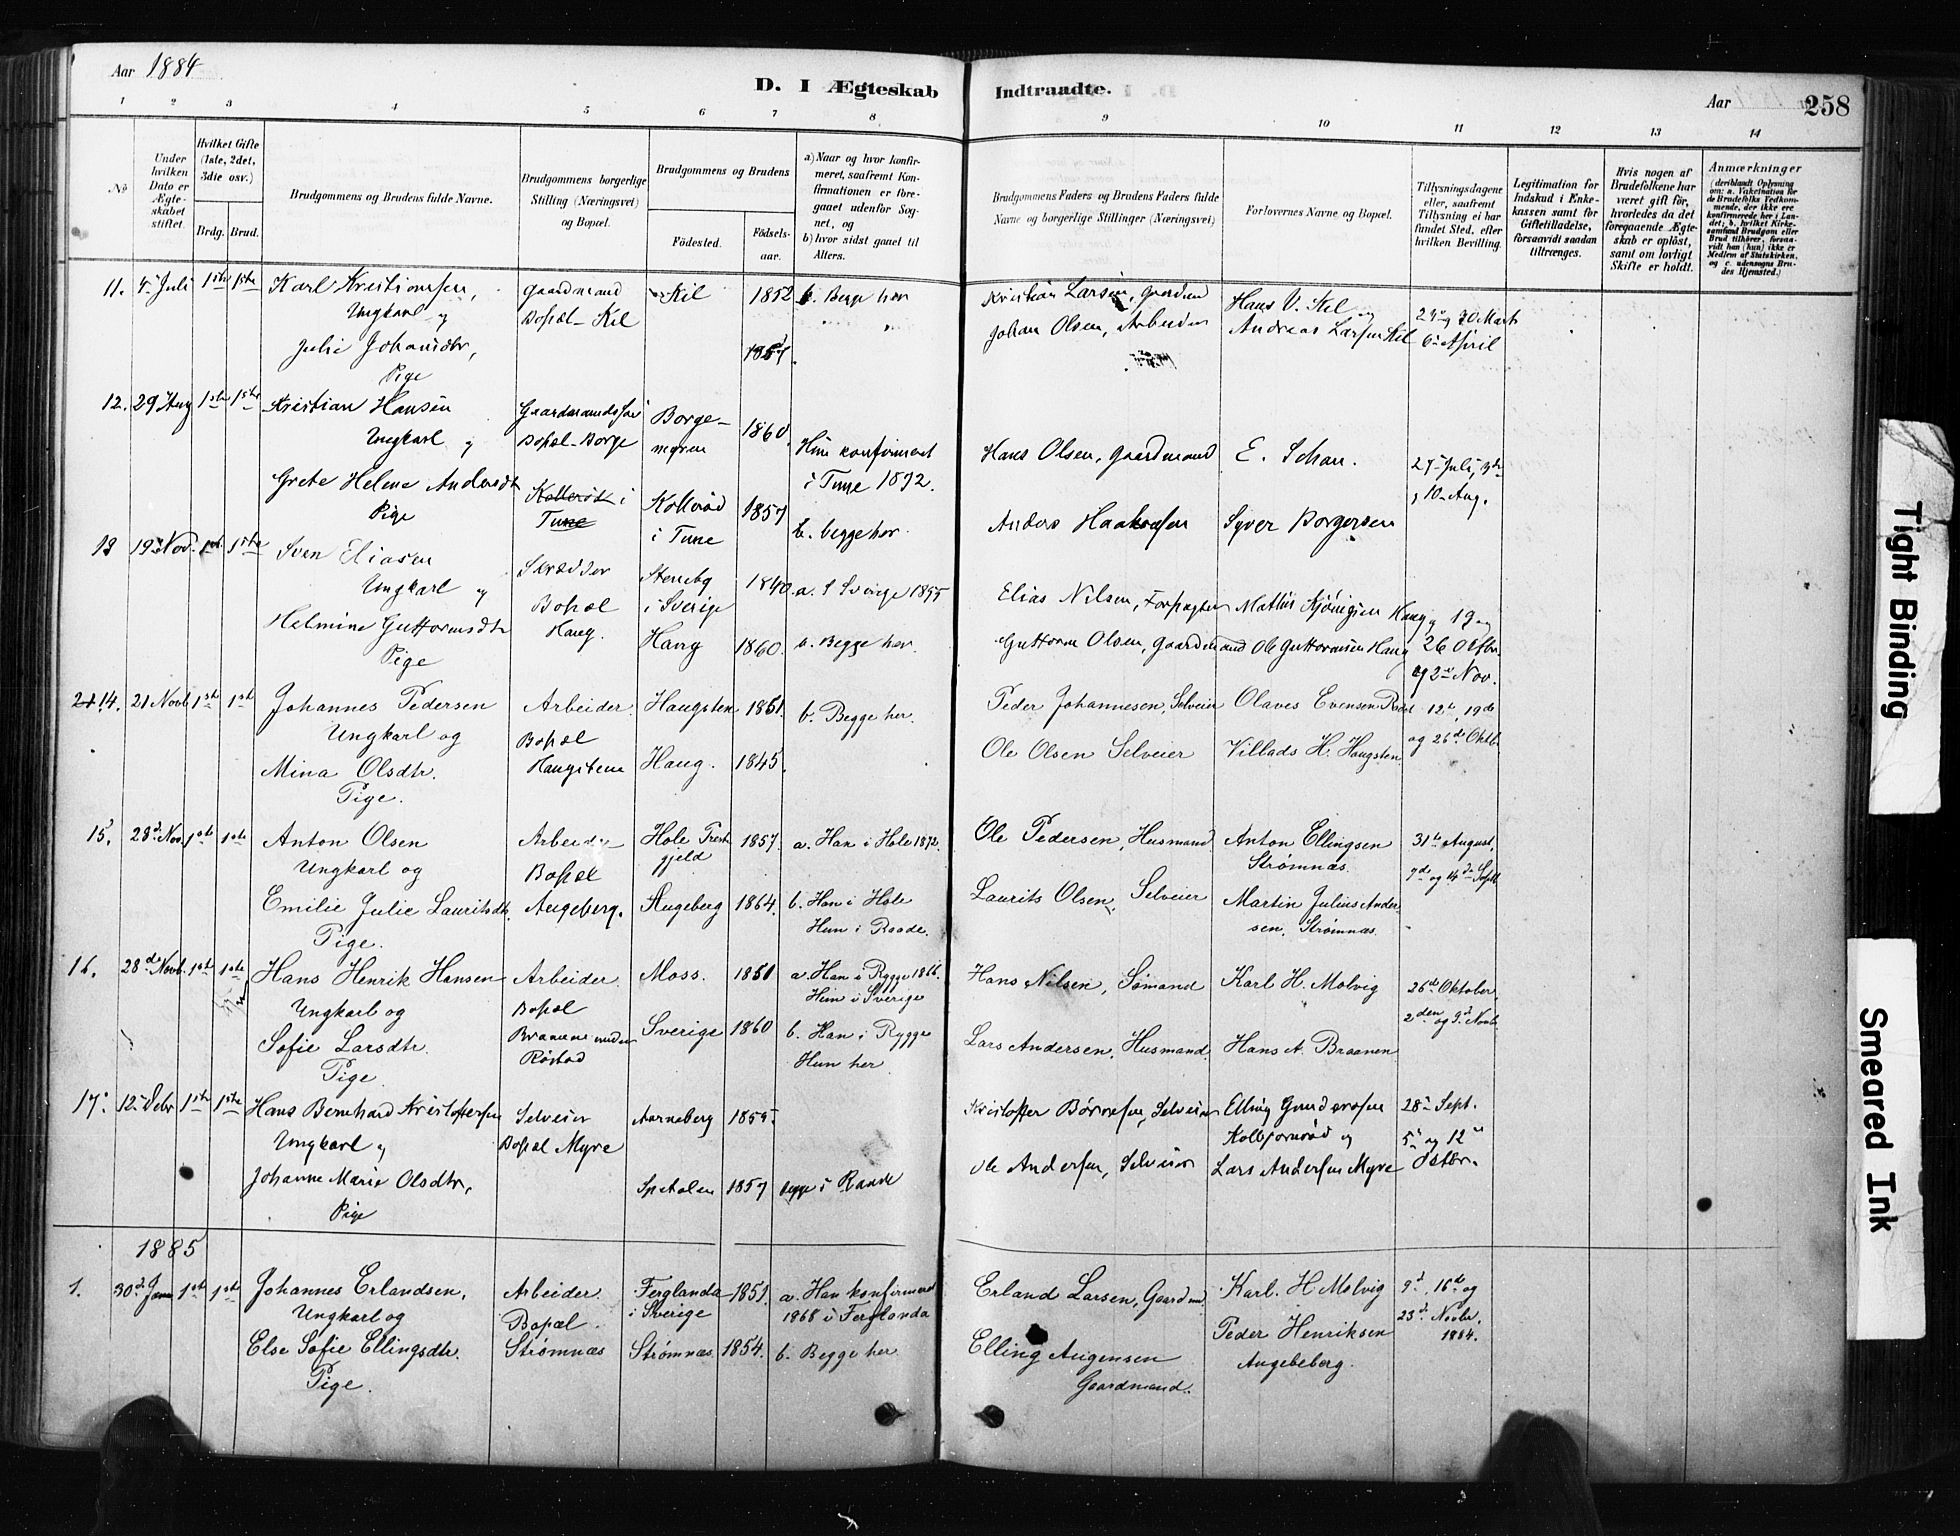 Aar 1884
D. I Ægteskab Indtraadte.
Aar
258
1 2 3 4 5 6 7 8 9 10 11 12 13 14
No
Under hvilken Dato er Ægteskabet stiftet.
Hvilket Gifte (1ste, 2det, 3die osv.)
Brdg. Brud.
Brudgommens og Brudens fulde Navne.
Brudgommens borgerlige Stilling (Næringsvei) og Bopæl.
Brudgommens og Brudens
Fødested.
Fødselsaar.
a) Naar og hvor konfirmeret, saafremt Konfirmationen er foregaaet udenfor Sognet, og
b) hvor sidst gaaet til Alters.
Brudgommens Faders og Brudens Faders fulde Navne og borgerlige Stillinger (Næringsvei)
Forlovernes Navne og Bopæl.
Tillysningsdagene eller, saafremt Tillysning ei har fundet Sted, efter hvilken Bevilling.
Legitimation for Indskud i Enkekassen samt for Giftetilladelse, forsaavidt saadan tiltrænges.
Hvis nogen af Brudefolkene har været gift før, hvorledes da det foregaaende Ægteskab er opløst, samt om lovligt Skifte er holdt.
Anmærkninger
(deriblandt Oplysning om: a. Vakcination for de Brudefolks Vedkommende, der ikke ere konfirmerede her i Landet; b. hvilket Kirkesamfund Brudgom eller Brud tilhører, forsaavidt han (hun) ikke er Medlem af Statskirken, og c. udensogns Brudes Hjemsted.)
11. 4 Juli 1ste 1ste Karl Kristiansen, Gaardmand Kil 1852 b. Begge her Kristian Larsen, Gaardmd Hans V. Kil og 23 og 30 Marts
Ungkarl og Bopæl Kil Johan Olsen, Arbeider Andreas Larsen Kil 6 April
Julie Johansdtr, 1857.
Pige
12. 29 Aug 1ste 1ste Kristian Hansen Gaardmandssøn Borge- 1860. Hans Olsen, Gaardmand E. Schau. 27 Juli, 3de
Ungkarl og Bopæl Borge Hun konfirmeret og 10 Aug.
Grete Helene Andersdt Kollerød i Kollerød 1857 i Tune 1892.
Pige Tune i Tune b. begge her. Anders Haakonsen Syver Borgersen
13 19 Nov. 1ste 1ste Sven Eliasen Skrædder Steneby 1840. a. I Sverige 1855 Elias Nilsen, Forpagter 19 og
Ungkarl og Bopæl i Sverige
Helmine Guttormsdtr Haug. Haug 1860. b. Begge her. Guttorm Olsen, Gaardmand Ole Guttormsen Haug 26 Oktbr.
Pige og 2 Nov.
14. 21 Novb 1ste 1ste Johannes Pedersen Arbeider. Haugsten 1861. b. Begge her. Peder Johannesen, Selveier Olaves Evensen 12te, 19de
Ungkarl og Bopæl og 26de Oktb.
Mina Olsdtr. Haugstene Haug. 1845. Ole Olsen Selveier Villads H. Haugsten.
Pige.
15. 28d. Nov. 1ste 1ste Anton Olsen Arbeider Hole Prest- 1857. a. Han i Hole 1872. Ole Pedersen, Husmand Anton Ellingsen 31te August,
Ungkarl og Bopæl gjeld Strømnæs. 7de og 14de Septb
Emilie Julie Lauritsdtr. Augeberg. Augeberg 1864. b. Han i Hole Laurits Olsen, Selveier Martin Julius Ander-
Pige. Hun i Raade. sen, Strømnæs.
16. 28de Novb. 1ste 1ste Hans Henrik Hansen Arbeider. Moss. 1851 a. Han i Rygge 1866. Hans Nilsen, Sømand Karl H. Molvig 26de Oktober,
Ungkarl og Bopæl Hun i Sverige 2den og 9de Novb
Sofie Larsdtr. Braanene under Sverige 1860 b. Han i Rygge Lars Andersen, Husmand. Hans A. Braanen
Pige. Røstad Hun her
17. 12 Debr 1ste 1ste Hans Bernhard Kristoffersen Selveier Aarneberg 1855. Kristoffer Børresen, Selveier Elling Gundersen 28 Sept.
Ungkarl og Bopæl Myre Kolbjørnrød og 5 og 12
Johanne Marie Olsdtr, Spetalen 1857 begge i Raade Ole Andersen, Selveier Lars Andersen Myre Oktbr.
Pige
1885
1. 30d. Jan 1ste 1ste Johannes Erlandsen, Arbeider. Ferglanda 1851. a. Han konfirmeret Erland Larsen, Gaardmd. Karl. H. Molvig 9d., 16de og
Ungkarl og Bopæl. i Sverige 1868 i Ferglanda 23d. Novbr.
Else Sofie Ellingsdtr. Strømnæs Strømnæs. 1854. b. Begge her. Elling Augensen Peder Henriksen 1884.
Pige. Gaardmand. Augebeberg.
Tight Binding
Smeared Ink